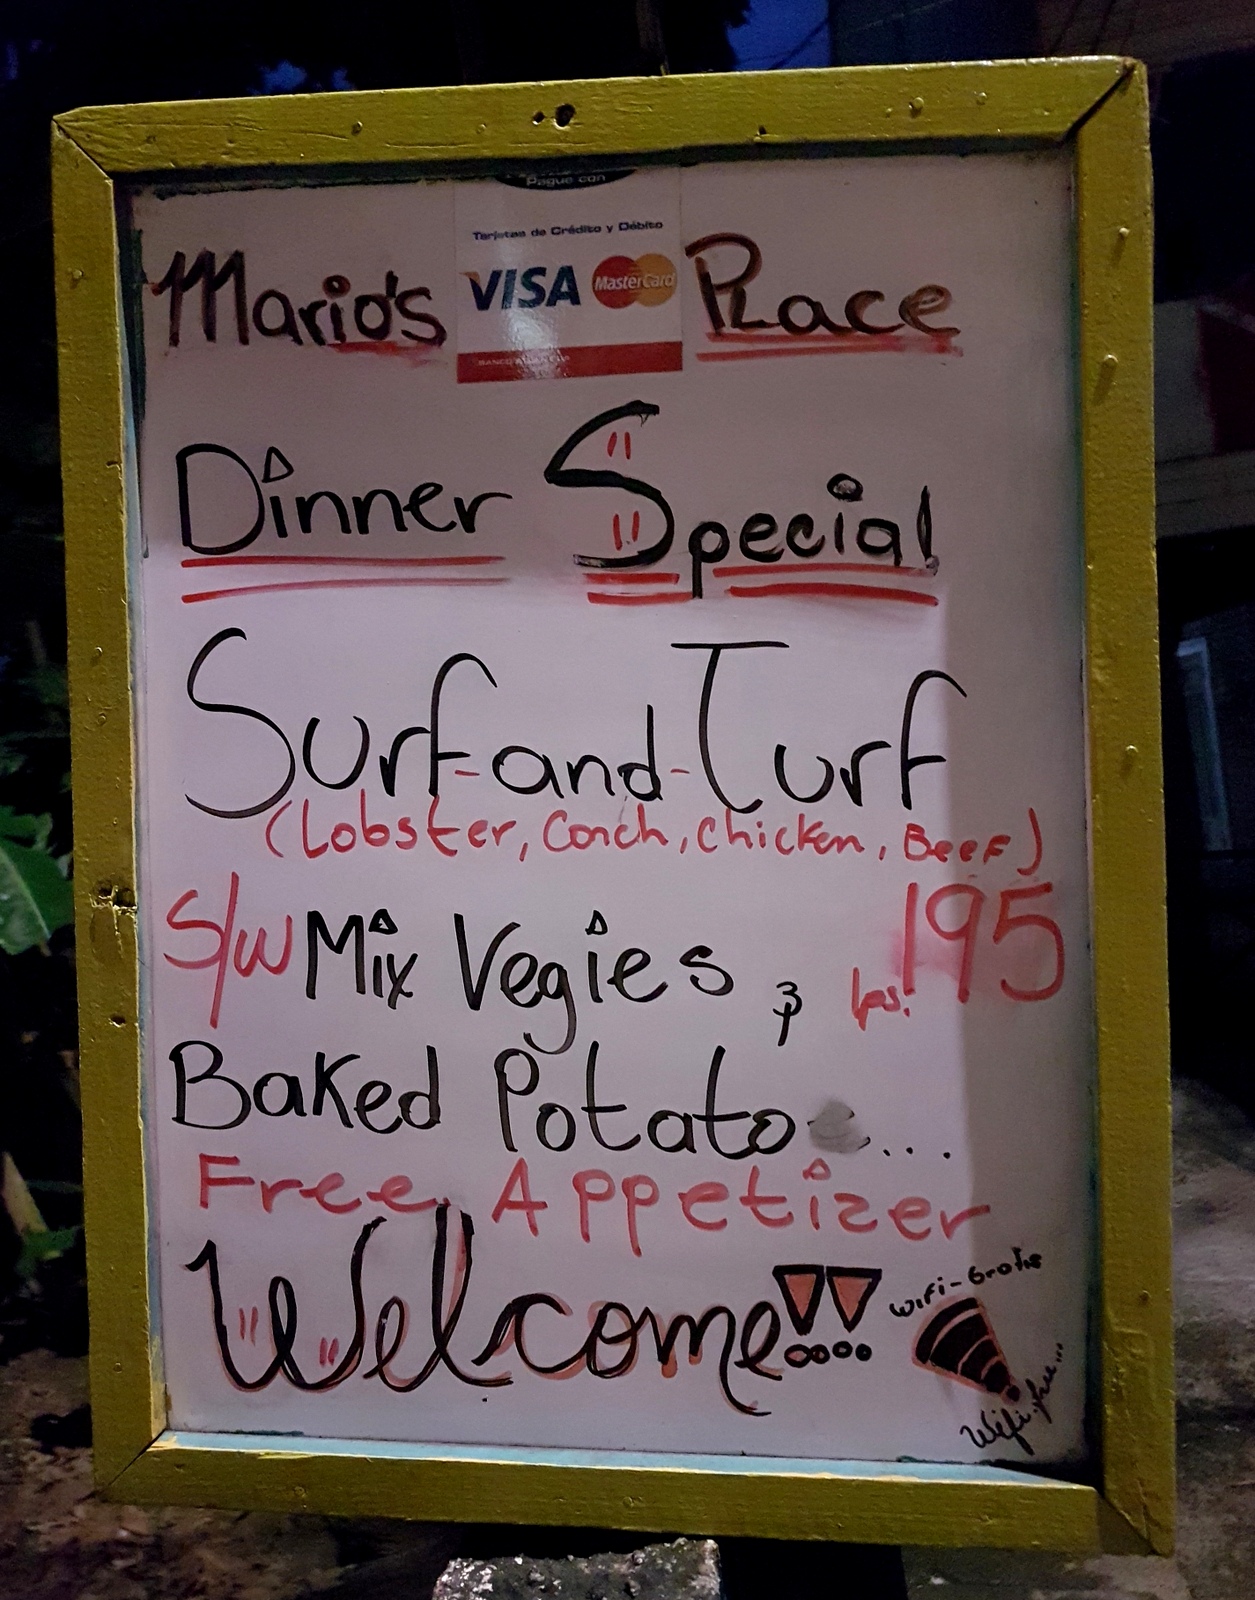 Pague con
Tarjetas de Crédito y Débito
Mario's VISA MasterCard Place
Dinner Special
Surf-and-Turf
(Lobster, Conch, Chicken, Beef)
S/W Mix Vegies & Lps. 195
Baked Potato...
Free Appetizer
Welcome!!
Wifi-Gratis
Wifi-free...